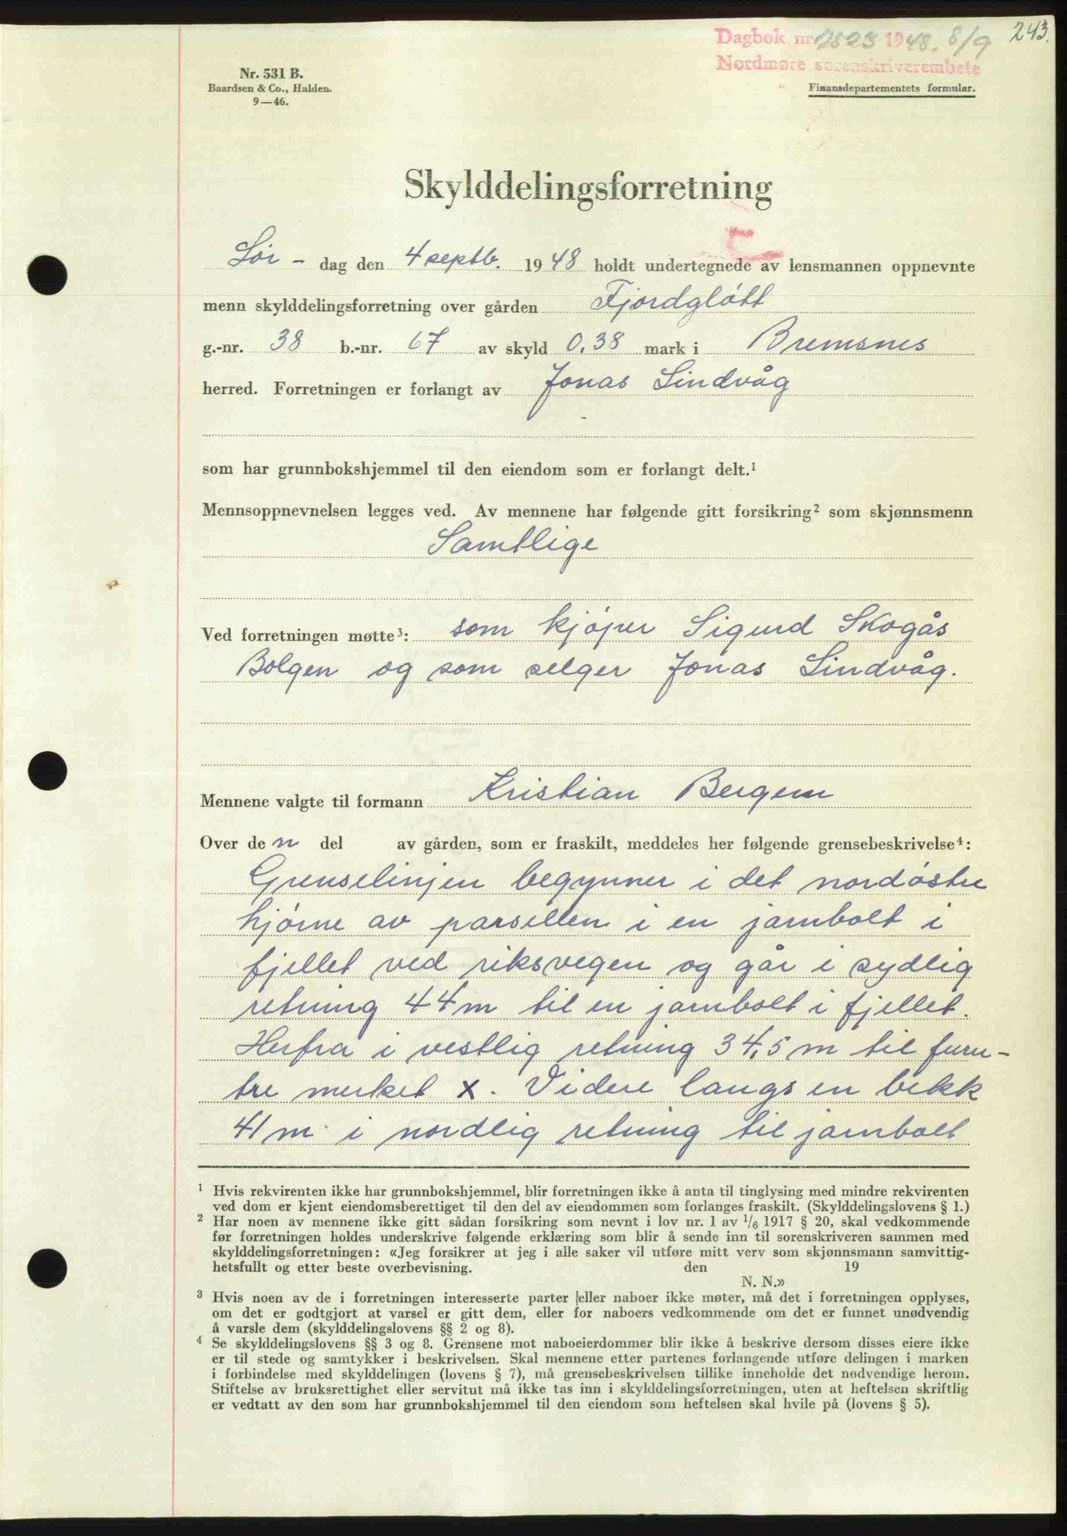 243.
Dagbok nr. 2523 1948. 8/9
Nordmøre sorenskriverembete
Nr. 531 B.
Baardsen & Co., Halden.
9—46.
Finansdepartementets formular.
Skylddelingsforretning
Lør- dag den 4 septb. 1948 holdt undertegnede av lensmannen oppnevnte
menn skylddelingsforretning over gården Fjordgløtt
g.-nr. 38 b.-nr. 67 av skyld 0,38 mark i Bremsnes
herred. Forretningen er forlangt av Jonas Lindvåg
som har grunnbokshjemmel til den eiendom som er forlangt delt.¹
Mennsoppnevnelsen legges ved. Av mennene har følgende gitt forsikring² som skjønnsmenn
Samtlige
Ved forretningen møtte³: som kjøper Sigurd Skogås
Bolgen og som selger Jonas Lindvåg.
Mennene valgte til formann Kristian Bergem
Over den del av gården, som er fraskilt, meddeles her følgende grensebeskrivelse⁴:
Grenselinjen begynner i det nordøstre
hjørne av parsellen i en jarnbolt i
fjellet ved riksvegen og går i sydlig
retning 44 m til en jarnbolt i fjellet.
Herfra i vestlig retning 34,5 m til furu-
tre merket x. Videre langs en bekk
41 m i nordlig retning til jarnbolt
¹ Hvis rekvirenten ikke har grunnbokshjemmel, blir forretningen ikke å anta til tinglysing med mindre rekvirenten
ved dom er kjent eiendomsberettiget til den del av eiendommen som forlanges fraskilt. (Skylddelingslovens § 1.)
² Har noen av mennene ikke gitt sådan forsikring som nevnt i lov nr. 1 av 1/6 1917 § 20, skal vedkommende
før forretningen holdes underskrive følgende erklæring som blir å sende inn til sorenskriveren sammen med
skylddelingsforretningen: «Jeg forsikrer at jeg i alle saker vil utføre mitt verv som skjønnsmann samvittig-
hetsfullt og etter beste overbevisning. den 19
N. N.»
³ Hvis noen av de i forretningen interesserte parter eller naboer ikke møter, må det i forretningen opplyses,
om det er godtgjort at varsel er gitt dem, eller for naboers vedkommende om det er funnet unødvendig
å varsle dem (skylddelingslovens §§ 2 og 8).
⁴ Se skylddelingslovens §§ 3 og 8. Grensene mot naboeierdommer blir ikke å beskrive dersom disses eiere ikke
er til stede og samtykker i beskrivelsen. Skal mennene etter partenes forlangende utføre delingen i marken
i forbindelse med skylddelingen (lovens § 7), må grensebeskrivelsen tillike inneholde det nødvendige herom.
Stiftelse av bruksrettighet eller servitut må ikke tas inn i skylddelingsforretningen, uten at heftelsen skriftlig
er vedtatt av den som har grunnbokshjemmel til den eiendom som heftelsen skal hvile på (lovens § 5).